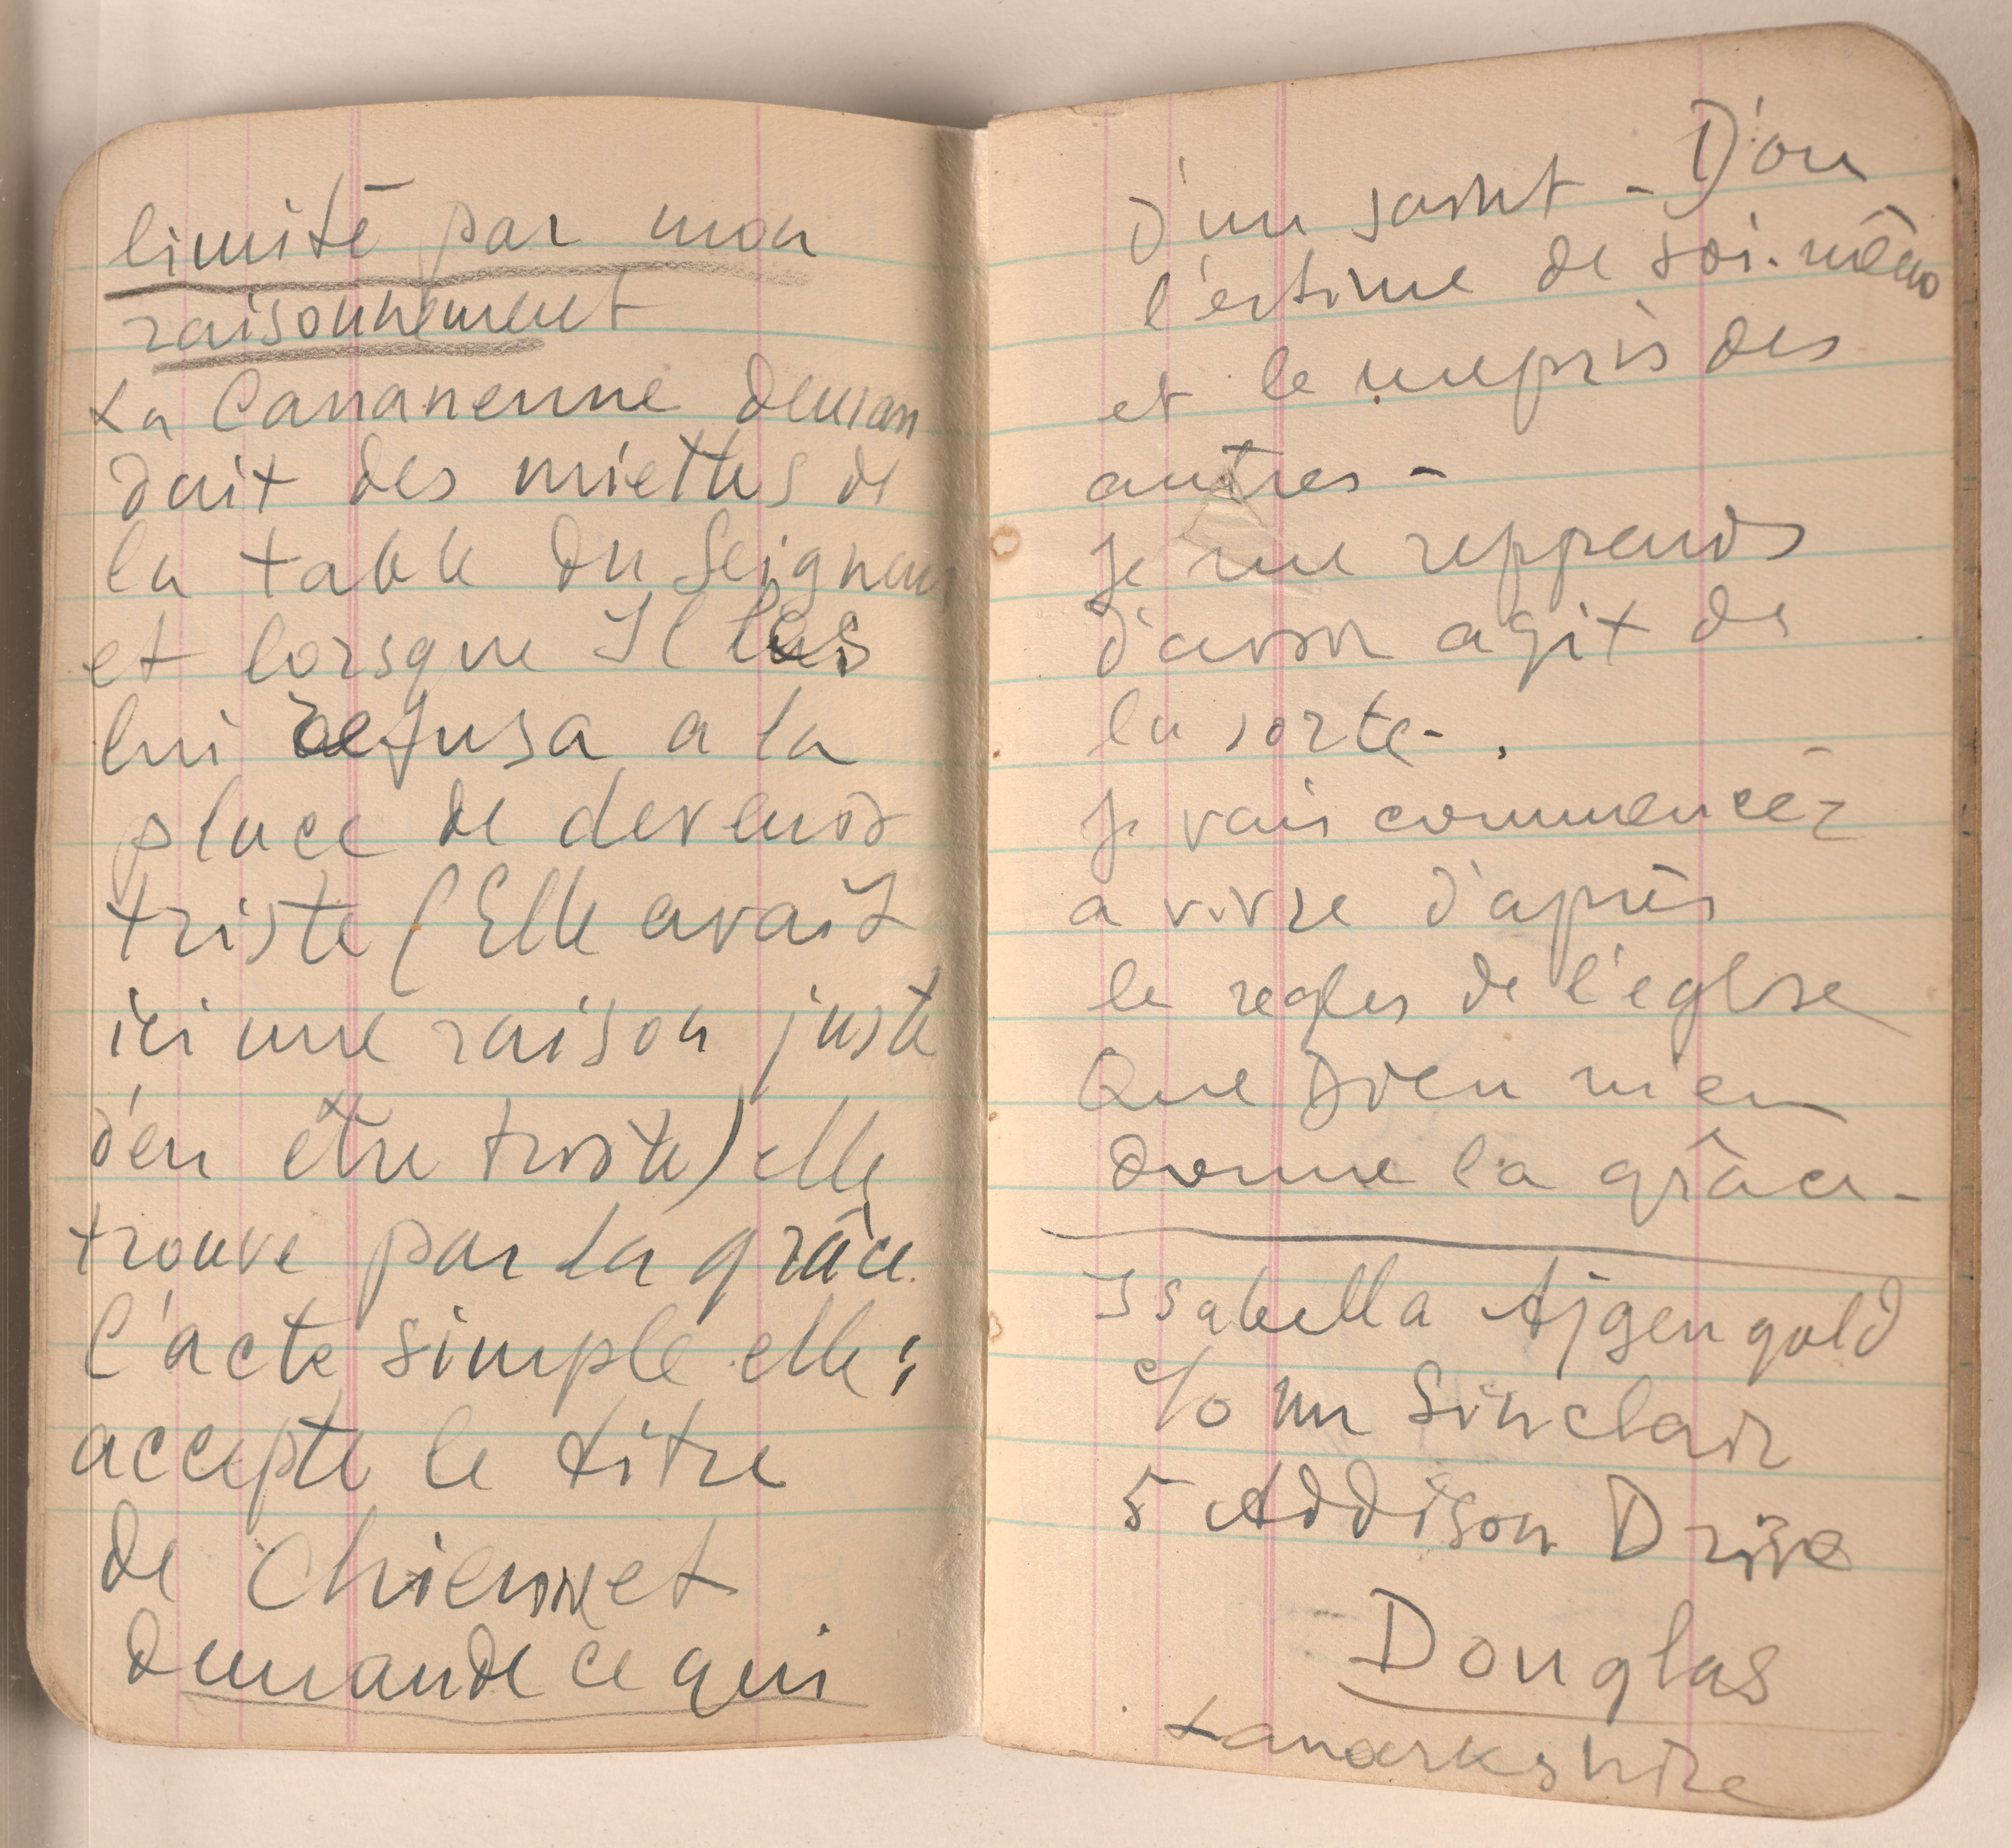 limité par mon
raisonnement
La Cananenne deman
dait des miettes de
la table du Seigneur
et lorsque Il les
lui refusa a la
place de devenir
triste (Elle avait
ici une raison juste
d'en être triste) elle
trouve par la grâce
l'acte simple elle;
accepte le titre
de Chienne et
demande ce qui
d'un saint - D'ou
l'estime de soi-même
et le mepris des
autres -
Je me reppends
d'avoir agit de
la sorte - .
Je vais commencér
a vivre d'après
le regles de l'eglise
Que Dieu m'en
donne la grâce -
Isabella Ajgengold
c/o Mr Sinclair
5 Addison Drive
Douglas
Lanarkshire